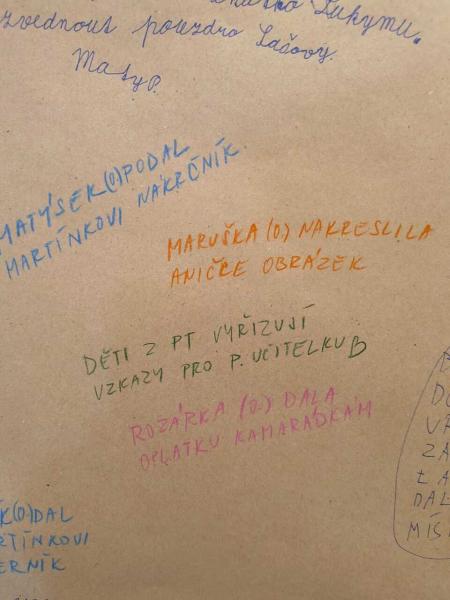 zvednout pouzdro Lašovy.
MatyP.
MATÝSEK (0) PODAL
MARTÍNKOVI NÁKRČNÍK.
MARUŠKA (0.) NAKRESLILA
ANIČCE OBRÁZEK
DĚTI Z PT VYŘIZUJÍ
VZKAZY PRO P. UČITELKU B
ROZÁRKA (0.) DALA
OPLATKU KAMARÁDKÁM
K(0) DAL
RTÍNKOVI
ERNÍK
DO
ZA
DAL
MÍS